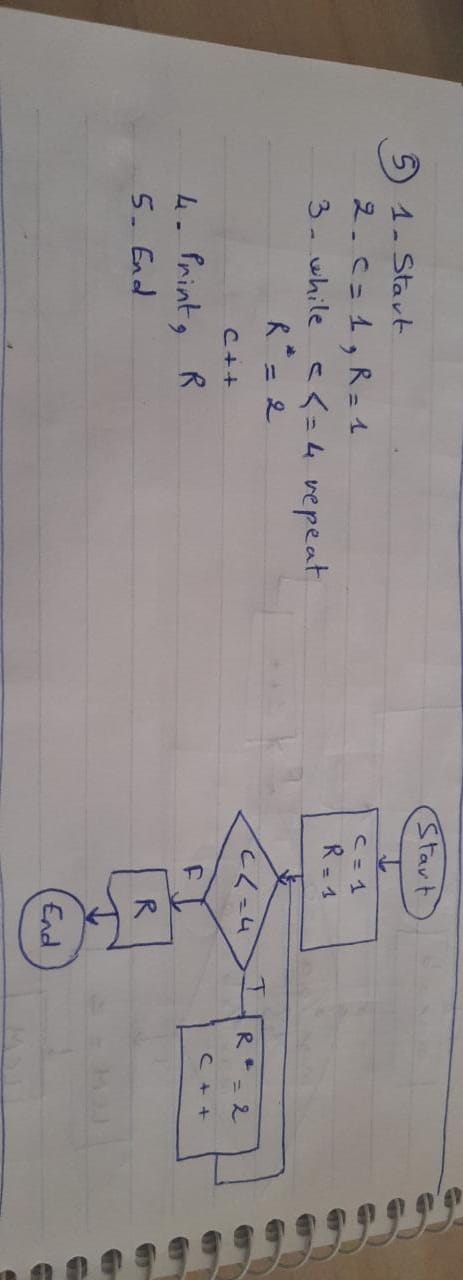 5) 1- Start
2- C = 1, R = 1
3- while C <= 4 repeat
R* = 2
C++
4- Print, R
5- End
Start
C = 1
R = 1
C <= 4
T
R* = 2
C++
F
R
End